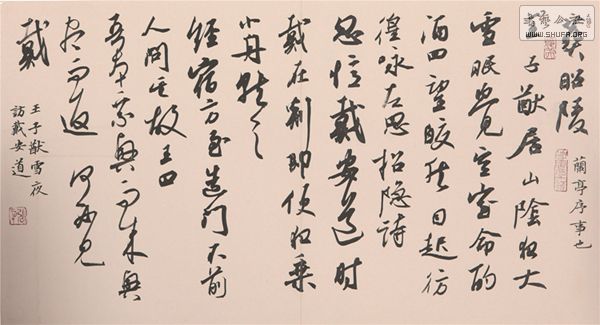 昭陵
蘭亭序事也
子猷居山陰夜大
雪眠覺室命酌
酒四望皎然因起彷
徨詠左思招隱詩
忽憶戴安道時
戴在剡即便夜乘
小舟就之
經宿方至造門不前
人問其故王曰
吾本乘興而来興
盡而返何必見
戴
王子猷雪夜
訪戴安道
WWW.SHUFA.ORG